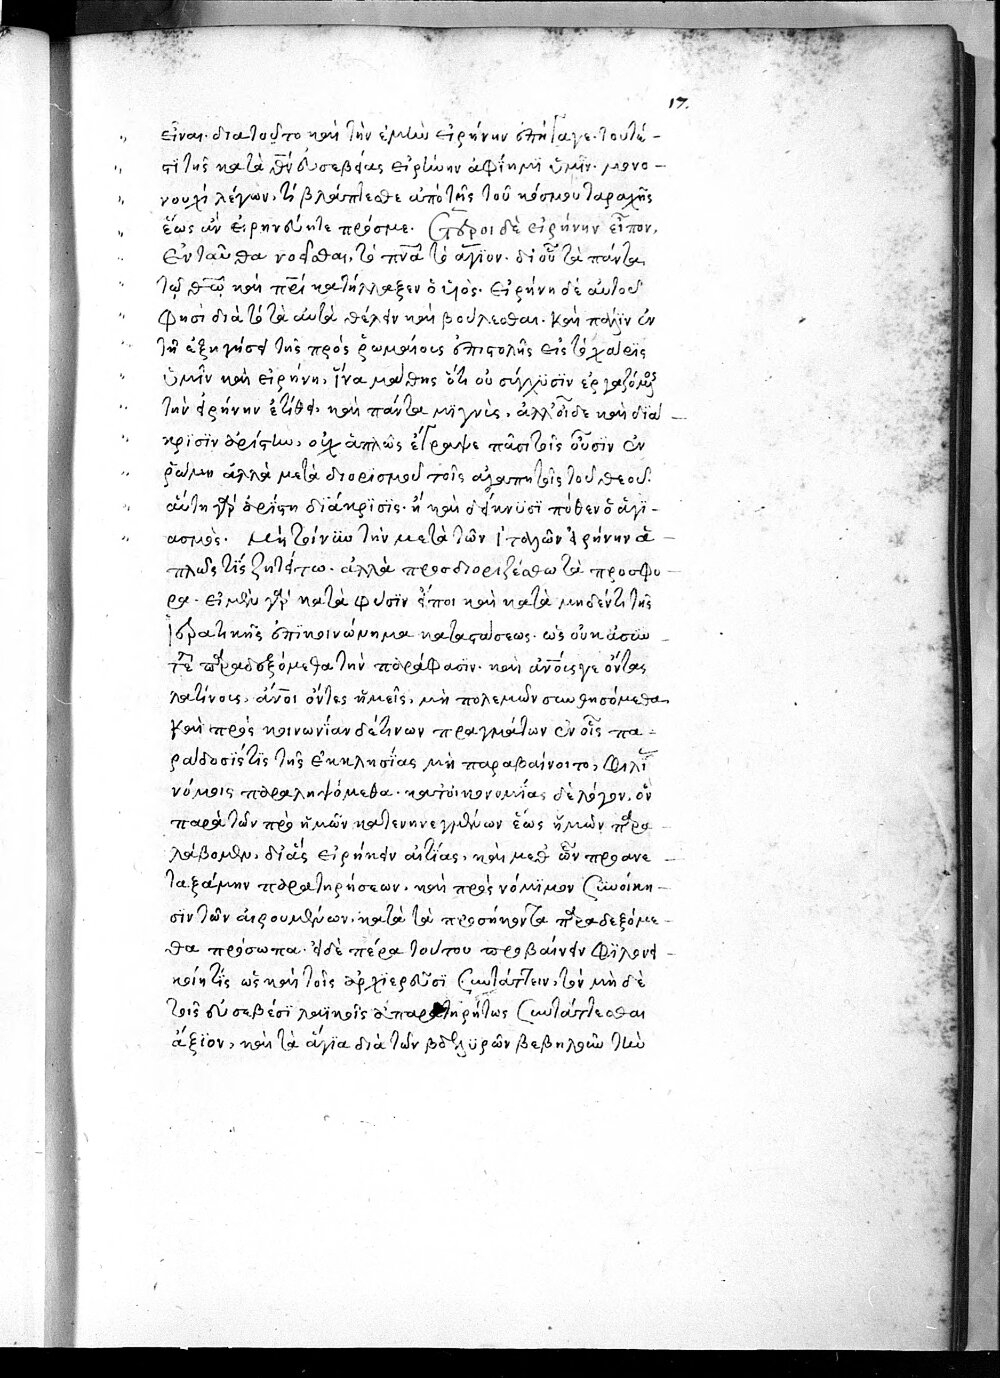 17.
εἶναι· διατοῦτο καὶ τὴν ἐμὴν εἰρήνην ἐπήγαγε· τουτέ-
στι τῆς κατὰ θν εὐσεβείας εἰρήνην ἀφίημι ὑμῖν· μονο
νουχὶ λέγων, τί βλάπτεσθε ἀπὸ τῆς τοῦ κόσμου ταραχῆς
ἕως ἂν εἰρηνεύητε πρός με. ἕτεροι δὲ εἰρήνην εἶπον,
ἐνταῦθα νοεῖσθαι, τὸ πνα τὸ ἅγιον· δι οὗ τὰ πάντα
τῷ θω καὶ πρὶ κατήλλαξεν ὁ υἱός· εἰρήνη δὲ αὐτοῦ
φησὶ διὰ τὸ τὰ αὐτὰ θέλειν καὶ βούλεσθαι. καὶ πάλιν ἐν
τῇ ἐξηγήσει τῆς πρὸς ῥωμαίους ἐπιστολῆς εἰς τὸ χάρις
ὑμῖν καὶ εἰρήνη, ἵνα μάθης ὅτι οὐ σύγχυσιν ἐργαζόμενος
τὴν εἰρήνην ἐτίθει, καὶ πάντα μιγνὺς, ἀλλ οἶδε καὶ διά-
κρισιν ἀρίστην, οὐχ ἁπλῶς ἔγραψε πᾶσι τοῖς οὖσιν ἐν
ῥώμη ἀλλὰ μετὰ διορισμοῦ τοῖς ἀγαπητοῖς τοῦ θεοῦ·
αὕτη γὰρ ἀρίστη διάκρισις· ἢ καὶ δείκνυσι πόθεν ὁ ἁγι-
ασμός. μὴ τοίνυν τὴν μετὰ τῶν ἰταλῶν εἰρήνην ἁ-
πλῶς τὶς ζητείτω· ἀλλὰ προσδιοριζέσθω τὰ πρόσφο-
ρα· εἰ μὲν γὰρ κατὰ φύσιν εἴποι καὶ κατὰ μηδέν τι τῆς
ἱερατικῆς ἐπικοινώνημα καταστάσεως· ὡς οὐκ ἄσω
τε παραδεξόμεθα τὴν πρόφασιν· καὶ ἀνοις γε ὄντας
λατίνοις, ἄνοι ὄντες ἡμεῖς, μὴ πολεμῶν πεισθησόμεθα·
καὶ πρὸς κοινωνίαν δέ τινων πραγμάτων ἐν οἷς πα-
ράδοσις τὶς τῆς ἐκκλησίας μὴ παραβαίνοιτο, φιλι
νόμοις παραληψόμεθα· κατ οἰκονομίας δὲ λόγον, ὃν
παρὰ τῶν πρὸ ἡμῶν κατενηνεγμένον ἕως ἡμῶν παρε-
λάβομεν, δι ἃς εἰρήκειν αἰτίας, καὶ μεθ ὧν προανε-
ταξάμην παρατηρήσεων, καὶ πρὸς νόμιμον συνοίκη-
σιν τῶν αἱρουμένων, κατὰ τὰ προσήκοντα παραδεξόμε-
θα πρόσωπα· εἰ δὲ πέρα τούτου προβαίνειν φιλονει-
κοίη τὶς ὡς καὶ τοῖς ἀρχιερεῦσι συντάττειν, τὸν μὴ δὲ
τοῖς εὐσεβέσι λαϊκοῖς ἀπαρατηρήτως συντάττεσθαι
ἄξιον, καὶ τὰ ἅγια διὰ τῶν βδελυρῶν βεβηλοῦν τῶν